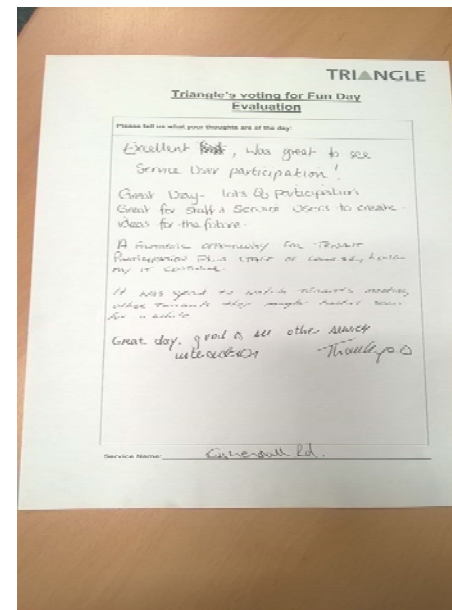 TRIANGLE
Triangle's voting for Fun Day
Evaluation
Please tell us what your thoughts are of the day:
Excellent, was great to see
Service User participation!
Great Day - lots of participation
Great for staff & Service Users to create
ideas for the future.
A opportunity for Tenant
Participation Plus staff of course, long
may it continue.
It was great to watch Tenants meeting
other Tenants they might haven't seen
for a while
Great day, good to see other service
interaction
Thank you
Service Name: Rd.